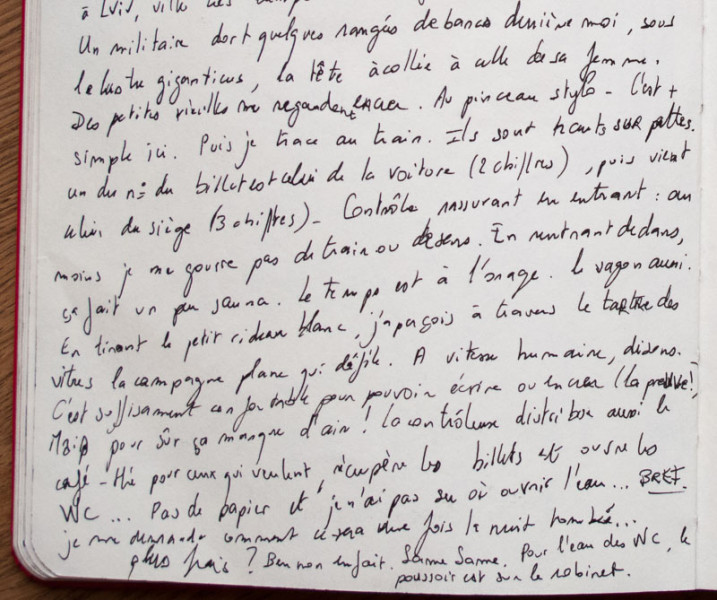 à Lviv, ville des
Un militaire dort quelques rangées de bancs derrière moi, sous
le lustre giganticus, la tête accollée à celle de sa femme.
Des petites vieilles me regardent encrer. Au pinceau stylo - C'est +
simple ici. Puis je trace au train. Ils sont hauts sur pattes.
un du n° du billet est celui de la voiture (2 chiffres), puis vient
celui du siège (3 chiffres) - Contrôle rassurant en entrant : au
moins je me gourre pas de train ou de sens. En rentrant dedans,
ça fait un peu sauna. Le temps est à l'orage. Le wagon aussi.
En tirant le petit rideau blanc, j'aperçois à travers le tartre des
vitres la campagne plane qui défile. A vitesse humaine, disons.
C'est suffisamment confortable pour pouvoir écrire ou encrer (la preuve!)
Mais pour sûr ça manque d'air ! La contrôleuse distribue aussi le
café - thé pour ceux qui veulent, récupère les billets et ouvre les
WC ... Pas de papier et je n'ai pas su où ouvrir l'eau ... BREF.
je me demande comment ce sera une fois la nuit tombée ...
plus frais ? Ben non en fait. Same Same. Pour l'eau des WC, le
poussoir est sur le robinet.